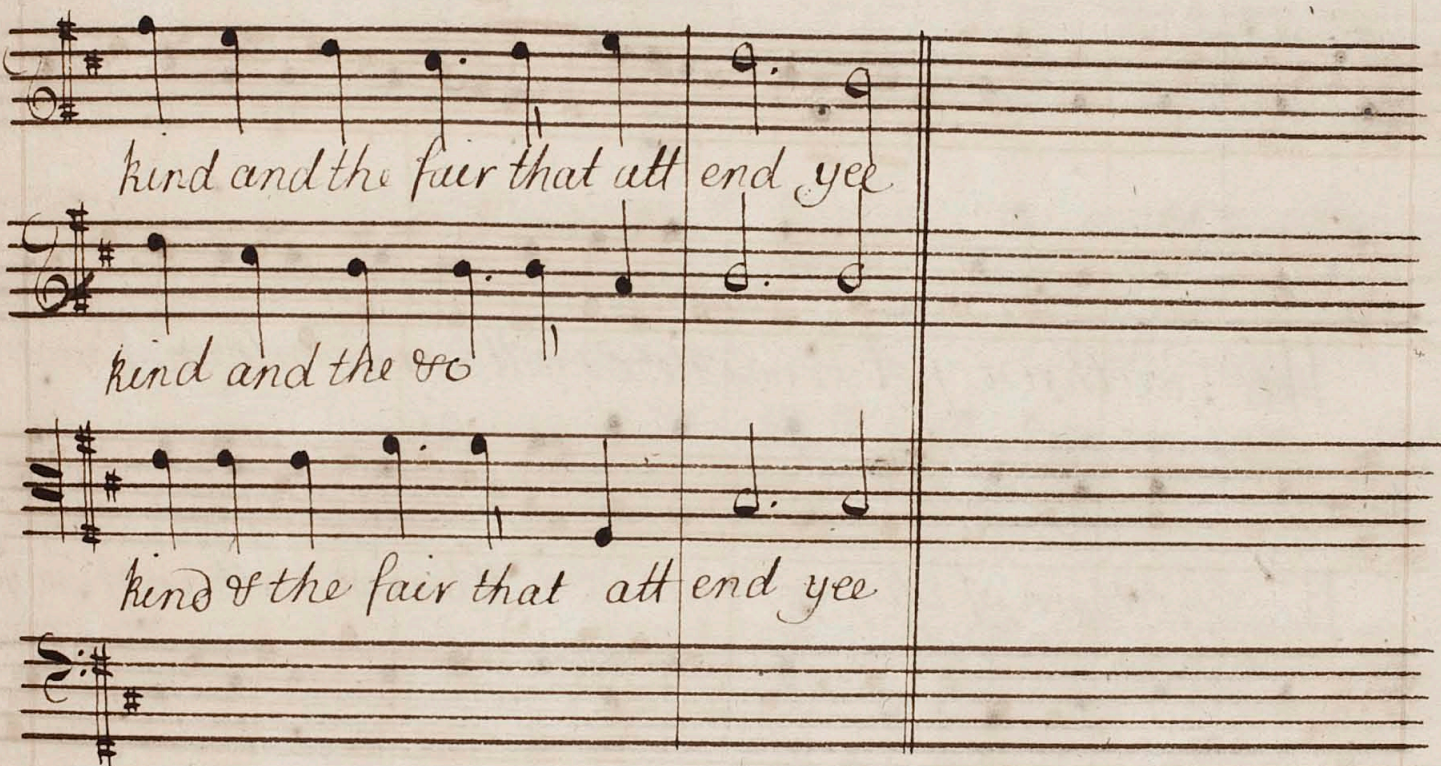 kind and the fair that att end yee
kind and the &c
kind & the fair that att end yee